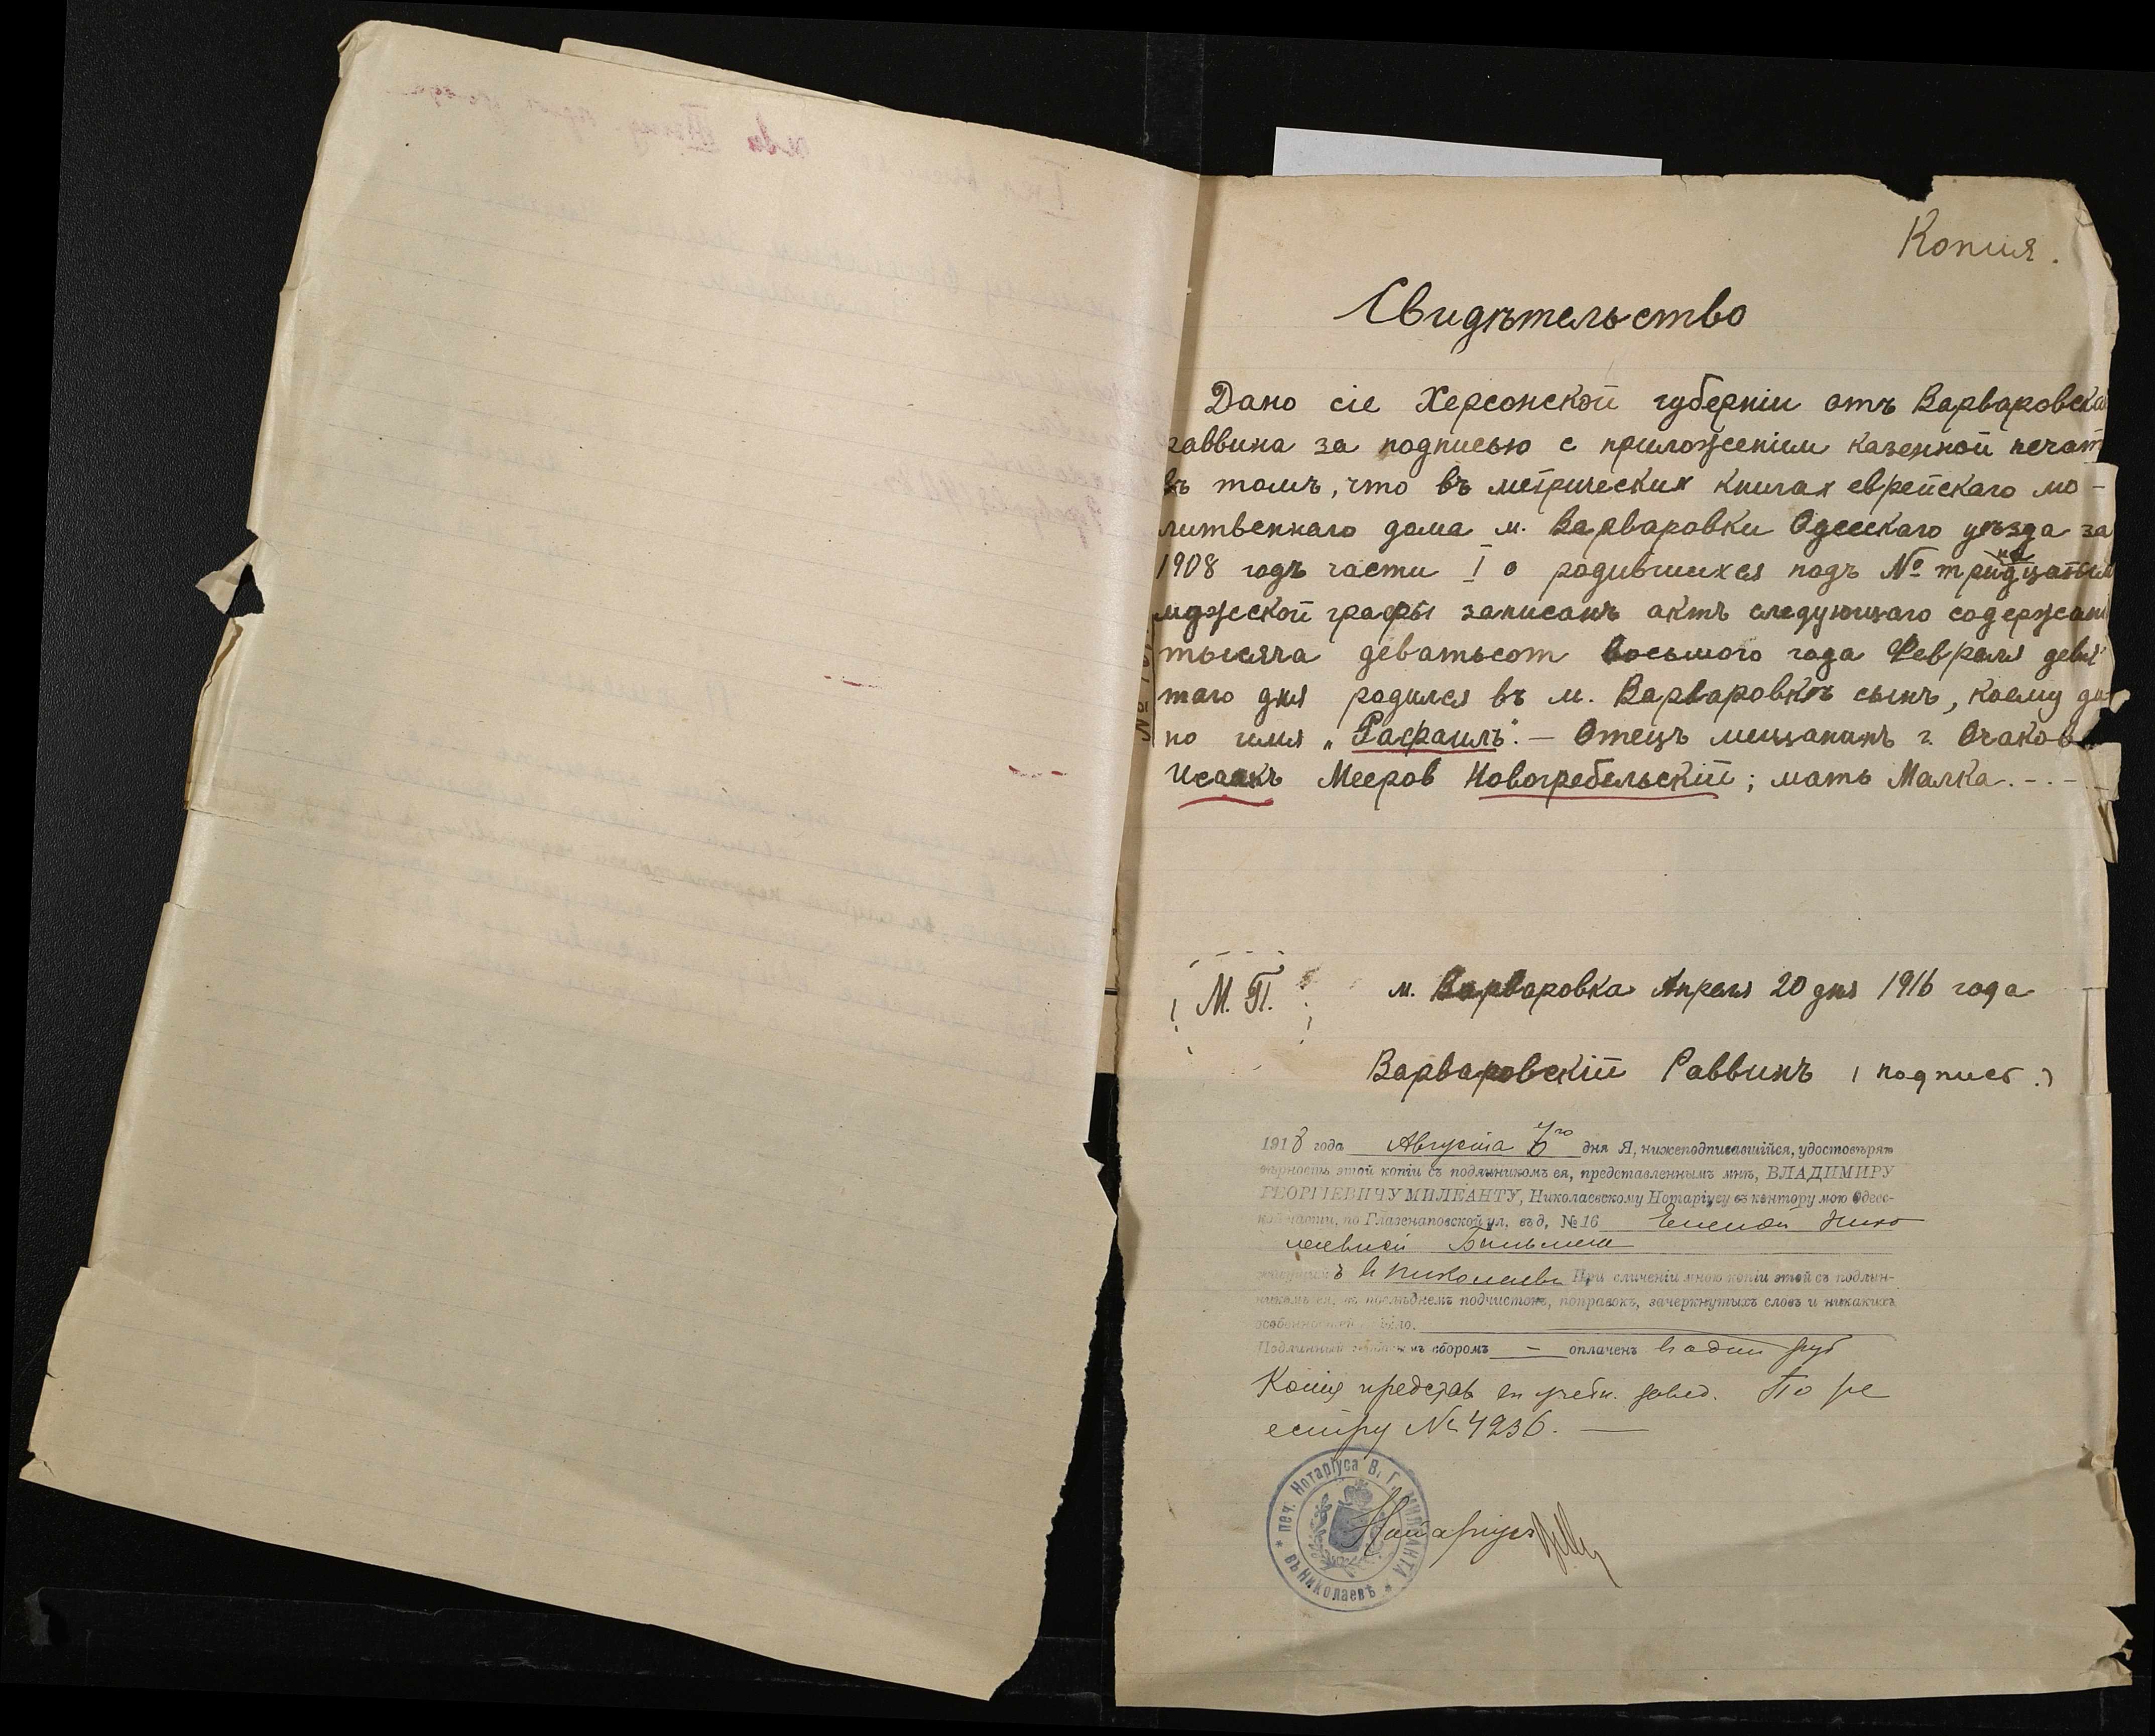 Копия.
Свидѣтельство
Дано сіе Херсонской губерніи отъ Варваровска
раввина за подписью с приложеніем казенной печат
въ томъ, что въ метрических книгах еврейскаго мо-
литвеннаго дома м. Варваровки Одесскаго уѣзда за
1908 годъ части I о родившихся подъ № тридцатым
мужской графы записанъ актъ слѣдующаго содержані
тысяча девятьсот восьмого года Февраля девя
таго дня родился въ м. Варваровкѣ сынъ, коему да-
но имя „Рафаилъ". — Отецъ мещанинъ г. Очаков
Исаакъ Мееров Новогребельскій; мать Малка. - . -
М. П.
м. Варваровка Апреля 20 дня 1916 года
Варваровскій Раввинъ (подпись.)
1918 года Августа дня Я, нижеподписавшійся, удостовѣряю
вѣрность этой копіи съ подлинникомъ ея, представленнымъ мнѣ, ВЛАДИМИРУ
ГЕОРГІЕВИЧУ МИЛЕАНТУ, Николаевскому Нотаріусу въ контору мою Одесс-
кой части, по Глазенаповской ул, въ д, № 16 Еленой Нико
лаевной
в Николаевѣ При сличеніи мною копіи этой съ подлин-
никомъ ея, въ послѣднемъ подчистокъ, поправокъ, зачеркнутыхъ словъ и никакихъ
особенностей было.
Подлинный сборомъ — оплаченъ в один руб
Копія представ въ учебн. завед. По ре
естру № 4236. —
* печ. Нотаріуса В. Г. МИЛЕАНТА * въ Николаевѣ
Нотаріусъ